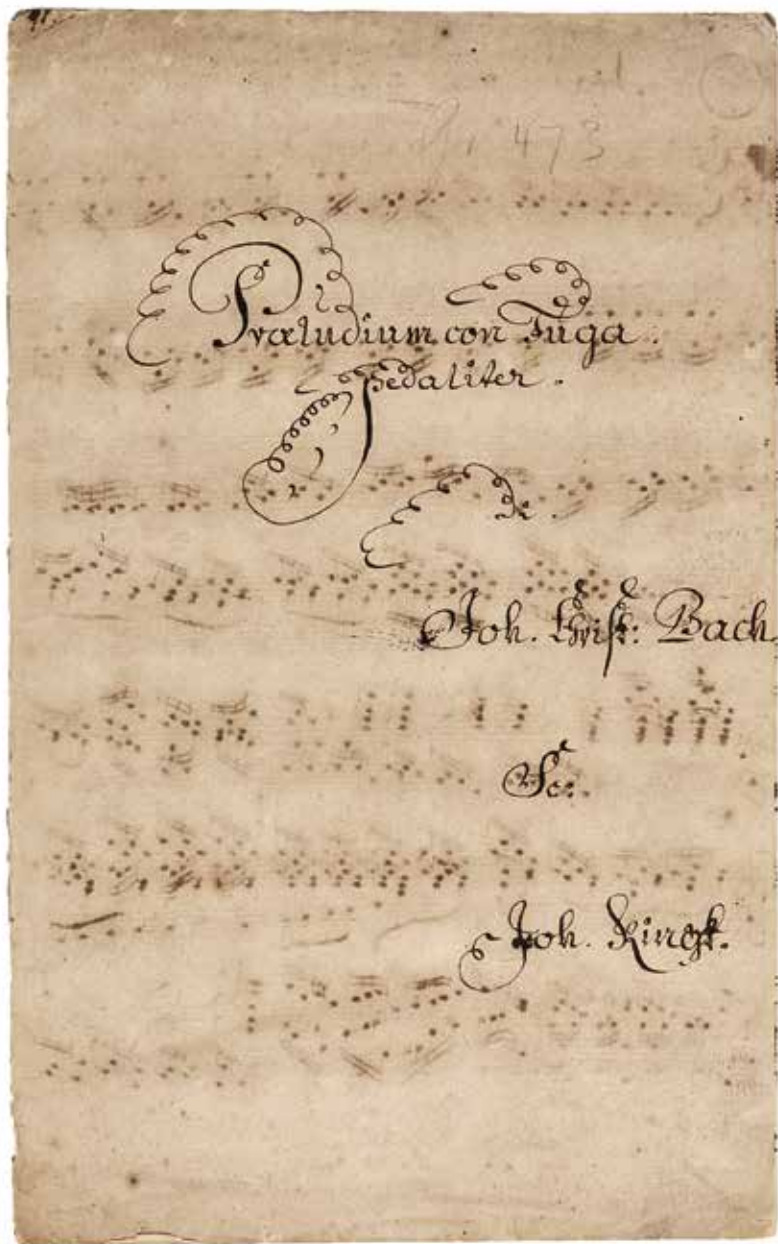 91.
473
Præludium con Fuga.
pedaliter.
di.
Joh. Christ: Bach.
Sc:
Joh. Ringk.